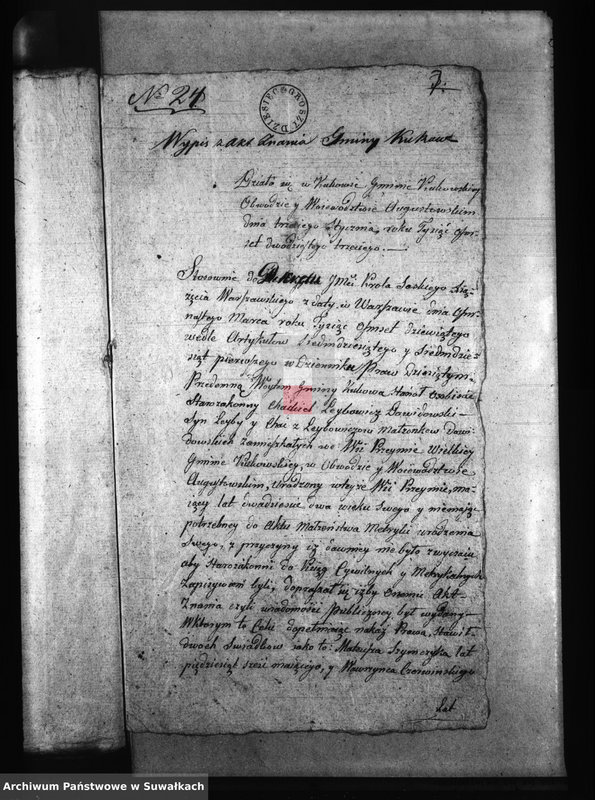 No 24
7.
DZIESIĘĆ GROSZY
Wypis z akt Znania Gminy Kukowa
Działo się w Kukowie Gminie Kukowskiey
Obwodzie y Woiewodztwie Augustowskim
dnia trzeciego Stycznia, roku Tysiąc Ośm-
set dwudziestego trzeciego.—
Stosownie do Dekretu JMci Krola Saskiego Xię-
żęcia Warszawskiego z daty w Warszawie dnia
Marca roku Tysiąc Ośmset dziewiątego
wedle Artykułow siedmdziesiątego y siedmdzie-
siąt pierwszego w Dzienniku Praw dziesiątym
Przedemną Woytem Gminy Kukowa stanoł osobiście
Starozakonny Leybowicz Dawidowski
Syn Leyby y Chai z Leybowiczow Małżonkow Dawi-
dowskich zamieszkałych we Wsi Przeymie Wielkiey
Gminie Kukowskiey, w Obwodzie y Woiewodztwie
Augustowskim, urodzony wteyże Wsi Przeymie, ma-
iący lat dwadziescie dwa wieku swego y niemaiąc
potrzebney do Aktu Małżeństwa Metryki urodzenia
swego, z przyczyny iż dawniey nie było zwyczaiu
aby Starozakonni do Xiąg Cywilnych y Metrykalnych
zapisywani byli, dopraszał się iżby onemu Akt
Znania czyli wiadomości Publiczney był wydany
Wktorym to Celu dopełniaiąc nakaz Prawa, stawił
dwoch Swiadkow iako to: Mateusza Szymczyka lat
piędziesiąt sześć maiącego, y Wawrzynca Czerwinskiego
lat
Archiwum Państwowe w Suwałkach